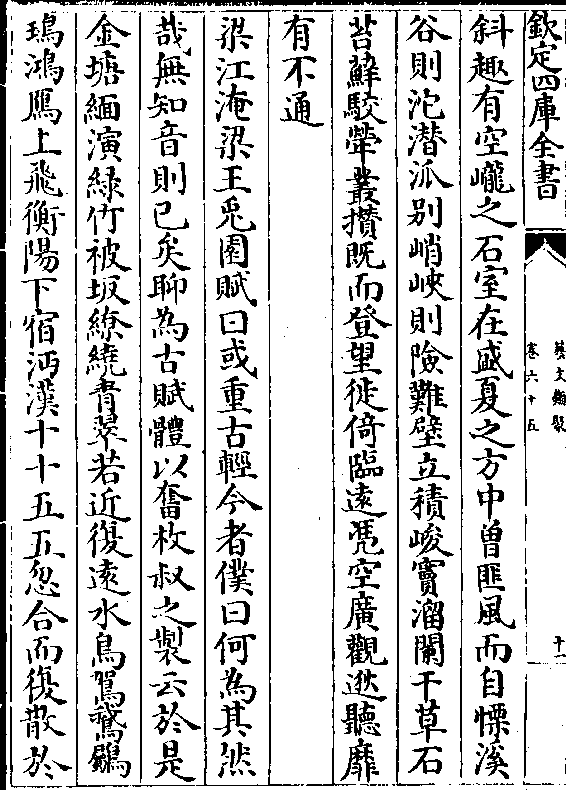 欽定四庫全書
藝文類聚
卷六十五
十一
斜趣有空巄之石室在盛夏之方中曽匪風而自慄溪
谷則沱潜泒别峭峽則險難壁立積峻竇溜闌干草石
苔蘚駮犖叢攅既而登望徙倚臨遠凭空廣觀逖聽靡
有不通
梁江淹梁王兎園賦曰或重古輕今者僕曰何為其然
哉無知音則已矣聊為古賦體以奮枚叔之製云於是
金塘緬演緑竹被坂繚繞青翠若近復遠水鳥駕鵞鸀
鳿鴻鴈上飛衡陽下宿沔漢十十五五忽合而復散於